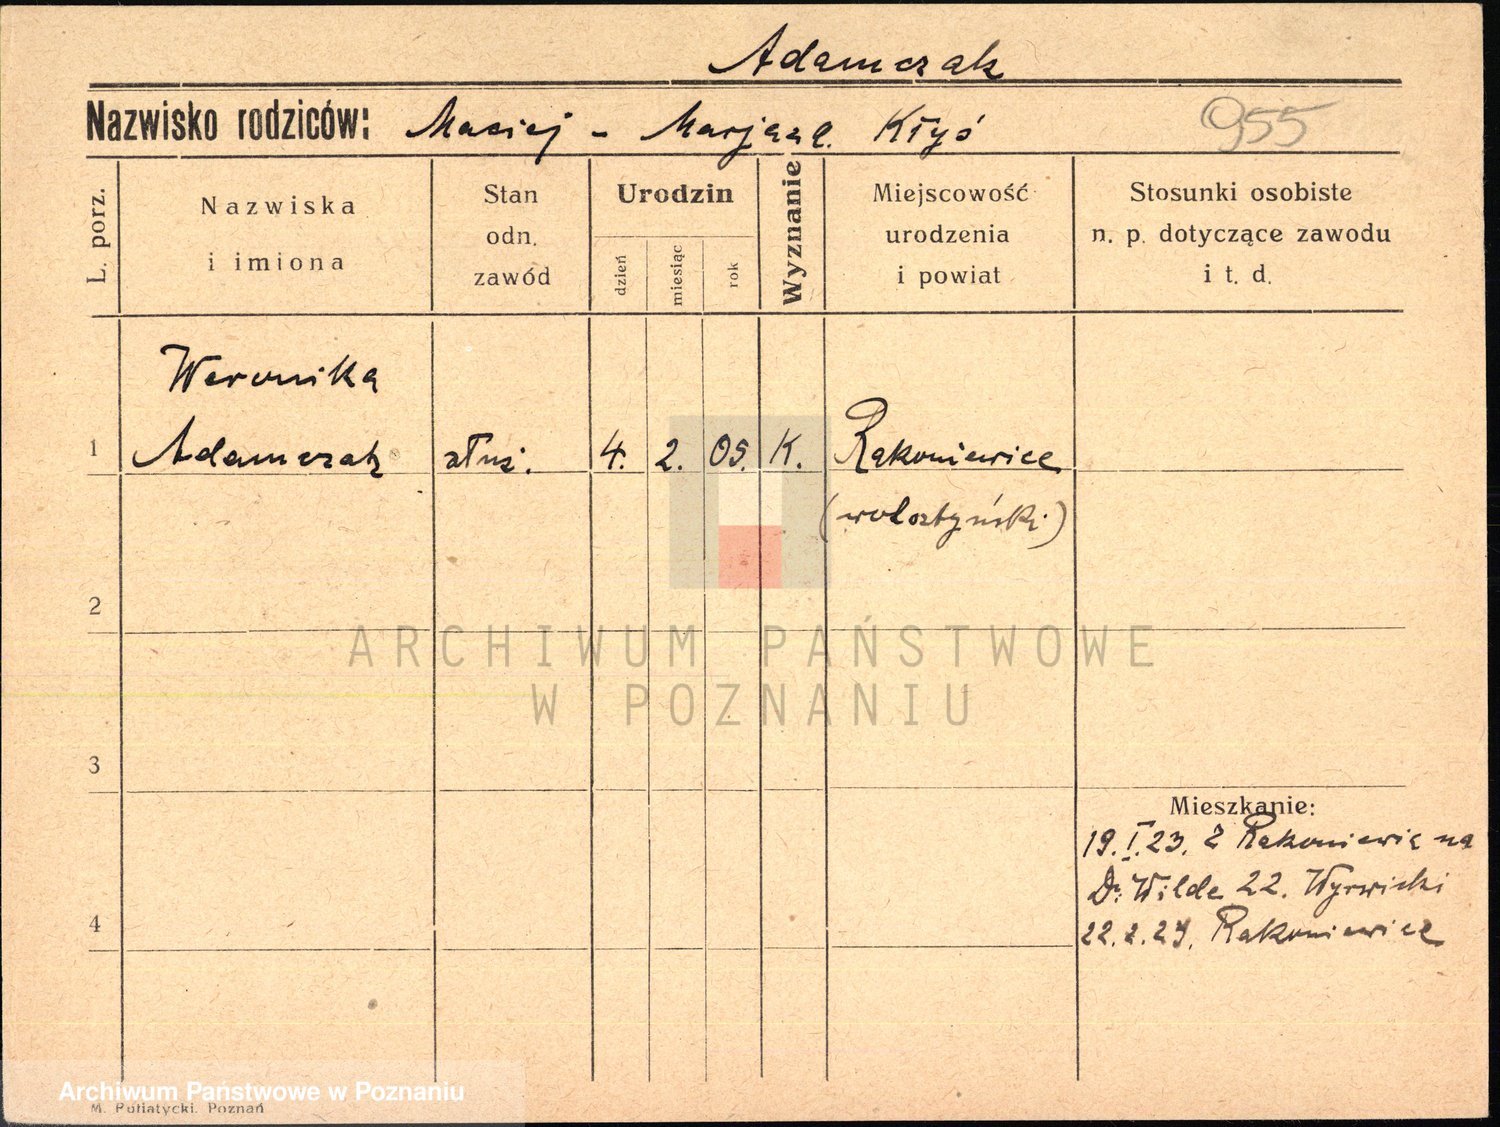 Adamczak
Nazwisko rodziców: Maciej - Marja Kłyś
955
L. porz.
Nazwiska
i imiona
Stan
odn.
zawód
Urodzin
dzień
miesiąc
rok
Wyznanie
Miejscowość
urodzenia
i powiat
Stosunki osobiste
n. p. dotyczące zawodu
i t. d.
Weronika
1 Adamczak służ. 4. 2. 05. K. Rakoniewice
(wolsztyński)
2
ARCHIWUM PAŃSTWOWE
W POZNANIU
3
Mieszkanie:
19.I.23. z Rakoniewic na
Dr. Wilde 22. Wyrwicki
4
22.2.24. Rakoniewice
Archiwum Państwowe w Poznaniu
M. Putiatycki. Poznań